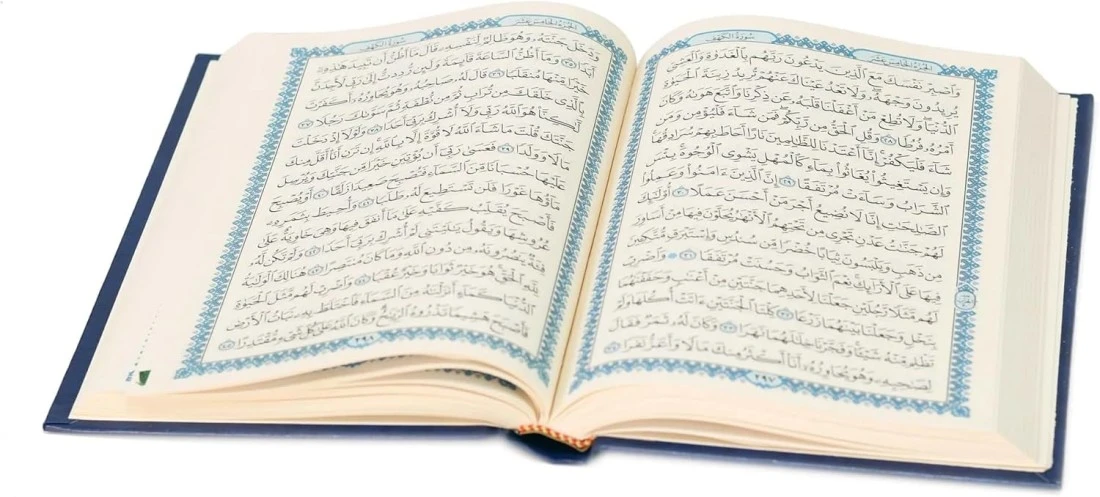 الجزء الخامس عشر سورة الكهف
وَٱصۡبِرۡ نَفۡسَكَ مَعَ ٱلَّذِينَ يَدۡعُونَ رَبَّهُم بِٱلۡغَدَوٰةِ وَٱلۡعَشِيِّ
يُرِيدُونَ وَجۡهَهُۥۖ وَلَا تَعۡدُ عَيۡنَاكَ عَنۡهُمۡ تُرِيدُ زِينَةَ ٱلۡحَيَوٰةِ
ٱلدُّنۡيَاۖ وَلَا تُطِعۡ مَنۡ أَغۡفَلۡنَا قَلۡبَهُۥ عَن ذِكۡرِنَا وَٱتَّبَعَ هَوَىٰهُ وَكَانَ
أَمۡرُهُۥ فُرُطٗا ٢٨ وَقُلِ ٱلۡحَقُّ مِن رَّبِّكُمۡۖ فَمَن شَآءَ فَلۡيُؤۡمِن وَمَن
شَآءَ فَلۡيَكۡفُرۡۚ إِنَّآ أَعۡتَدۡنَا لِلظَّٰلِمِينَ نَارًا أَحَاطَ بِهِمۡ سُرَادِقُهَاۚ
وَإِن يَسۡتَغِيثُواْ يُغَاثُواْ بِمَآءٖ كَٱلۡمُهۡلِ يَشۡوِي ٱلۡوُجُوهَۚ بِئۡسَ
ٱلشَّرَابُ وَسَآءَتۡ مُرۡتَفَقًا ٢٩ إِنَّ ٱلَّذِينَ ءَامَنُواْ وَعَمِلُواْ
ٱلصَّٰلِحَٰتِ إِنَّا لَا نُضِيعُ أَجۡرَ مَنۡ أَحۡسَنَ عَمَلًا ٣٠ أُوْلَٰٓئِكَ
لَهُمۡ جَنَّٰتُ عَدۡنٖ تَجۡرِي مِن تَحۡتِهِمُ ٱلۡأَنۡهَٰرُ يُحَلَّوۡنَ فِيهَا مِنۡ أَسَاوِرَ
مِن ذَهَبٖ وَيَلۡبَسُونَ ثِيَابًا خُضۡرٗا مِّن سُندُسٖ وَإِسۡتَبۡرَقٖ مُّتَّكِـِٔينَ
فِيهَا عَلَى ٱلۡأَرَآئِكِۚ نِعۡمَ ٱلثَّوَابُ وَحَسُنَتۡ مُرۡتَفَقٗا ٣١ ۞ وَٱضۡرِبۡ
لَهُم مَّثَلٗا رَّجُلَيۡنِ جَعَلۡنَا لِأَحَدِهِمَا جَنَّتَيۡنِ مِنۡ أَعۡنَٰبٖ وَحَفَفۡنَٰهُمَا
بِنَخۡلٖ وَجَعَلۡنَا بَيۡنَهُمَا زَرۡعٗا ٣٢ كِلۡتَا ٱلۡجَنَّتَيۡنِ ءَاتَتۡ أُكُلَهَا وَلَمۡ
تَظۡلِم مِّنۡهُ شَيۡـٔٗاۚ وَفَجَّرۡنَا خِلَٰلَهُمَا نَهَرٗا ٣٣ وَكَانَ لَهُۥ ثَمَرٞ فَقَالَ
لِصَٰحِبِهِۦ وَهُوَ يُحَاوِرُهُۥٓ أَنَا۠ أَكۡثَرُ مِنكَ مَالٗا وَأَعَزُّ نَفَرٗا ٣٤
٢٩٧
الجزء الخامس عشر سورة الكهف
وَدَخَلَ جَنَّتَهُۥ وَهُوَ ظَالِمٞ لِّنَفۡسِهِۦ قَالَ مَآ أَظُنُّ أَن تَبِيدَ هَٰذِهِۦٓ
أَبَدٗا ٣٥ وَمَآ أَظُنُّ ٱلسَّاعَةَ قَآئِمَةٗ وَلَئِن رُّدِدتُّ إِلَىٰ رَبِّي لَأَجِدَنَّ
خَيۡرٗا مِّنۡهَا مُنقَلَبٗا ٣٦ قَالَ لَهُۥ صَاحِبُهُۥ وَهُوَ يُحَاوِرُهُۥٓ أَكَفَرۡتَ
بِٱلَّذِي خَلَقَكَ مِن تُرَابٖ ثُمَّ مِن نُّطۡفَةٖ ثُمَّ سَوَّىٰكَ رَجُلٗا ٣٧
لَّٰكِنَّا۠ هُوَ ٱللَّهُ رَبِّي وَلَآ أُشۡرِكُ بِرَبِّيٓ أَحَدٗا ٣٨ وَلَوۡلَآ إِذۡ دَخَلۡتَ
جَنَّتَكَ قُلۡتَ مَا شَآءَ ٱللَّهُ لَا قُوَّةَ إِلَّا بِٱللَّهِۚ إِن تَرَنِ أَنَا۠ أَقَلَّ مِنكَ
مَالٗا وَوَلَدٗا ٣٩ فَعَسَىٰ رَبِّيٓ أَن يُؤۡتِيَنِ خَيۡرٗا مِّن جَنَّتِكَ وَيُرۡسِلَ
عَلَيۡهَا حُسۡبَانٗا مِّنَ ٱلسَّمَآءِ فَتُصۡبِحَ صَعِيدٗا زَلَقًا ٤٠ أَوۡ يُصۡبِحَ
مَآؤُهَا غَوۡرٗا فَلَن تَسۡتَطِيعَ لَهُۥ طَلَبٗا ٤١ وَأُحِيطَ بِثَمَرِهِۦ
فَأَصۡبَحَ يُقَلِّبُ كَفَّيۡهِ عَلَىٰ مَآ أَنفَقَ فِيهَا وَهِيَ خَاوِيَةٌ عَلَىٰ
عُرُوشِهَا وَيَقُولُ يَٰلَيۡتَنِي لَمۡ أُشۡرِكۡ بِرَبِّيٓ أَحَدٗا ٤٢ وَلَمۡ تَكُن لَّهُۥ
فِئَةٞ يَنصُرُونَهُۥ مِن دُونِ ٱللَّهِ وَمَا كَانَ مُنتَصِرًا ٤٣ هُنَالِكَ ٱلۡوَلَٰيَةُ
لِلَّهِ ٱلۡحَقِّۚ هُوَ خَيۡرٞ ثَوَابٗا وَخَيۡرٌ عُقۡبٗا ٤٤ وَٱضۡرِبۡ لَهُم مَّثَلَ ٱلۡحَيَوٰةِ
ٱلدُّنۡيَا كَمَآءٍ أَنزَلۡنَٰهُ مِنَ ٱلسَّمَآءِ فَٱخۡتَلَطَ بِهِۦ نَبَاتُ ٱلۡأَرۡضِ
فَأَصۡبَحَ هَشِيمٗا تَذۡرُوهُ ٱلرِّيَٰحُۗ وَكَانَ ٱللَّهُ عَلَىٰ كُلِّ شَيۡءٖ مُّقۡتَدِرًا ٤٥
٢٩٨